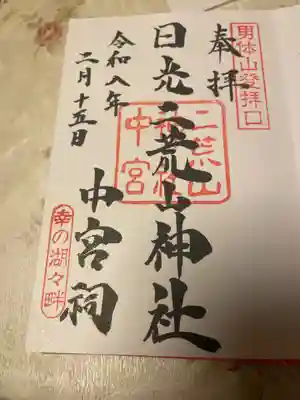 男体山登拝口
奉拝
日光二荒山神社
中宮祠
令和八年
二月十五日
二荒山
中宮
幸の湖々畔